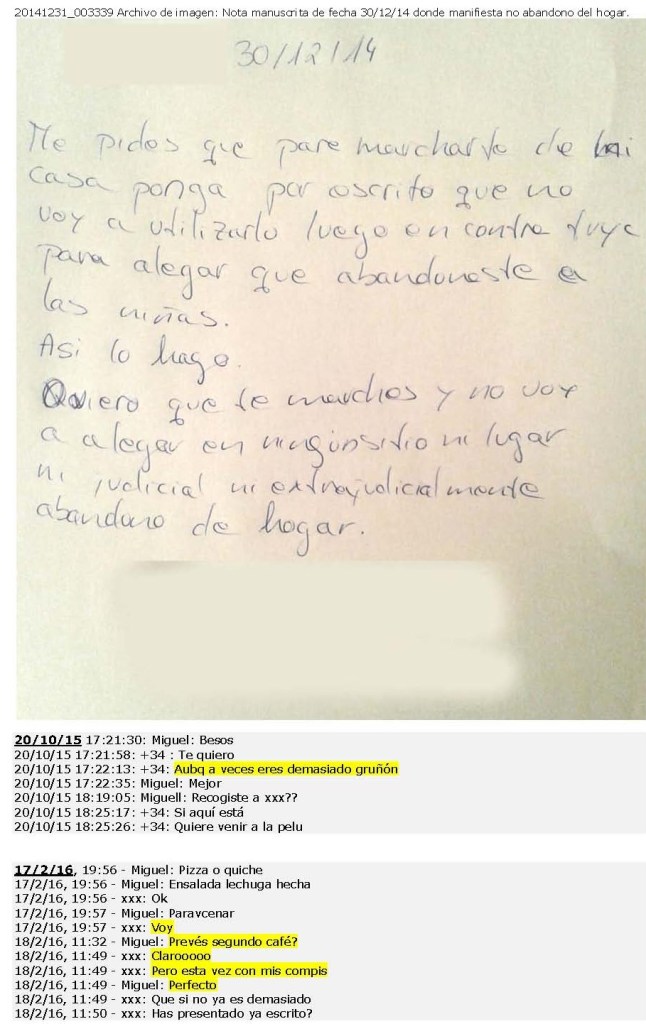 20141231_003339 Archivo de imagen: Nota manuscrita de fecha 30/12/14 donde manifiesta no abandono del hogar.
30/12/14
Me pides que para marcharte de mi
casa ponga por escrito que no
voy a utilizarlo luego en contra tuya
para alegar que abandonaste a
las niñas.
Asi lo hago.
Quiero que te marches y no voy
a alegar en ningún sitio ni lugar
ni judicial ni extrajudicialmente
abandono de hogar.
20/10/15 17:21:30: Miguel: Besos
20/10/15 17:21:58: +34 : Te quiero
20/10/15 17:22:13: +34: Aubq a veces eres demasiado gruñón
20/10/15 17:22:35: Miguel: Mejor
20/10/15 18:19:05: Miguell: Recogiste a xxx??
20/10/15 18:25:17: +34: Si aquí está
20/10/15 18:25:26: +34: Quiere venir a la pelu
17/2/16, 19:56 - Miguel: Pizza o quiche
17/2/16, 19:56 - Miguel: Ensalada lechuga hecha
17/2/16, 19:56 - xxx: Ok
17/2/16, 19:57 - Miguel: Paravcenar
17/2/16, 19:57 - xxx: Voy
18/2/16, 11:32 - Miguel: Prevés segundo café?
18/2/16, 11:49 - xxx: Clarooooo
18/2/16, 11:49 - xxx: Pero esta vez con mis compis
18/2/16, 11:49 - Miguel: Perfecto
18/2/16, 11:49 - xxx: Que si no ya es demasiado
18/2/16, 11:50 - xxx: Has presentado ya escrito?